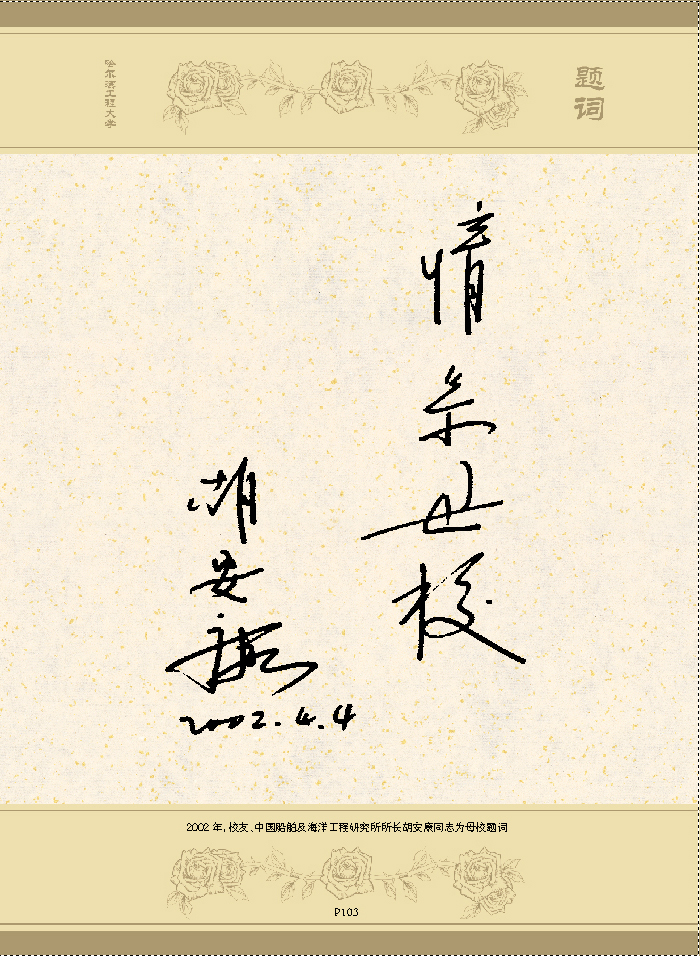 哈尔滨工程大学
题词
情系母校
胡安康
2002.4.4
2002年,校友、中国船舶及海洋工程研究所所长胡安康同志为母校题词
P103